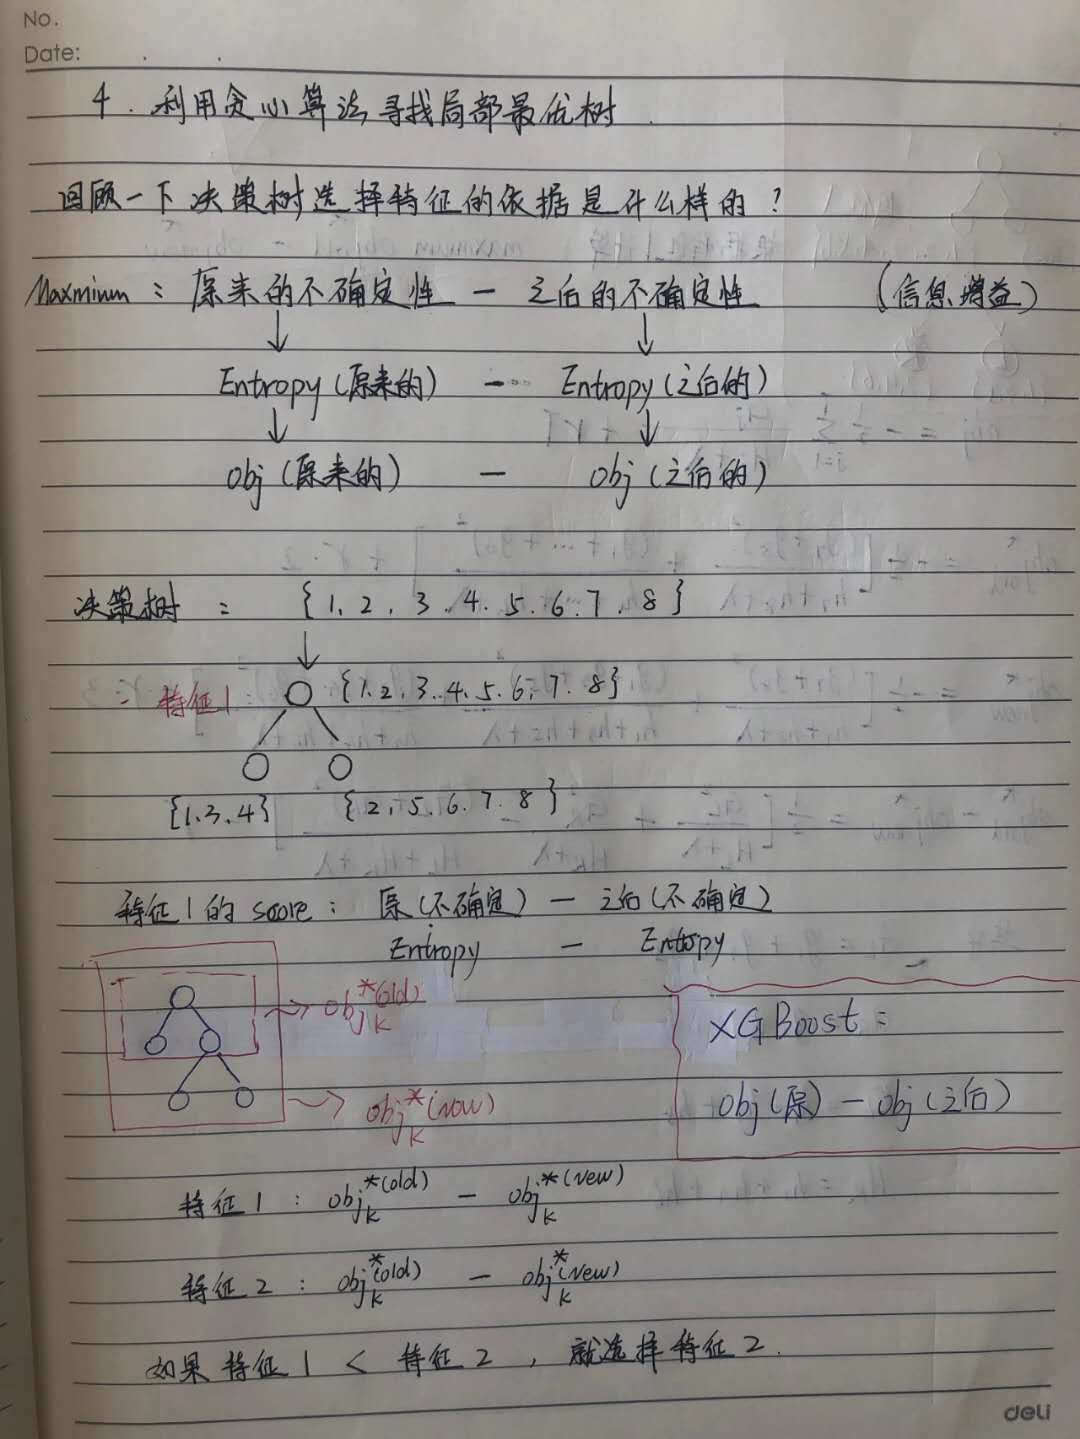 No.
Date:
4. 利用贪心算法寻找局部最优树.
回顾一下决策树选择特征的依据是什么样的?
Maxminum: 原来的不确定性 — 之后的不确定性 (信息增益)
↓ ↓
Entropy(原来的) — Entropy(之后的)
↓ ↓
Obj(原来的) — Obj(之后的)
决策树: {1,2,3,4,5,6,7,8}
↓
特征1: {1,2,3,4,5,6,7,8}
{1,3,4} {2,5,6,7,8}
特征1的score: 原(不确定) — 之后(不确定)
Entropy — Entropy
→ obj_k^*(old)
XGBoost:
→ obj_k^*(new)
obj(原) — obj(之后)
特征1: obj_k^*(old) — obj_k^*(new)
特征2: obj_k^*(old) — obj_k^*(new)
如果 特征1 < 特征2, 就选择特征2.
deli